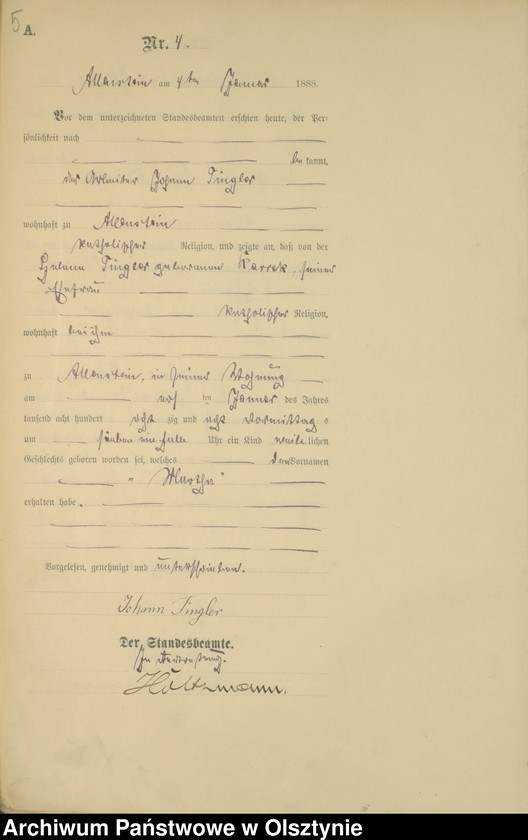 5
A.
Nr. 4.
Allenstein am 4ten Januar 1888.
Vor dem unterzeichneten Standesbeamten erschien heute, der Per-
sönlichkeit nach
be kannt,
der Arbeiter Johann Tingler
wohnhaft zu Allenstein
katholischer Religion, und zeigte an, daß von der
Tingler geborenen seiner
Ehefrau
katholischer Religion,
wohnhaft bei ihm
zu Allenstein, in seiner Wohnung
am ten Januar des Jahres
tausend acht hundert acht zig und acht Vormittag s
um sieben ein halb Uhr ein Kind weib lichen
Geschlechts geboren worden sei, welches den Vornamen
"Martha"
erhalten habe.
Vorgelesen, genehmigt und unterschrieben.
Johann Tingler
Der Standesbeamte.
In Vertretung.
Holtzmann.
Archiwum Państwowe w Olsztynie